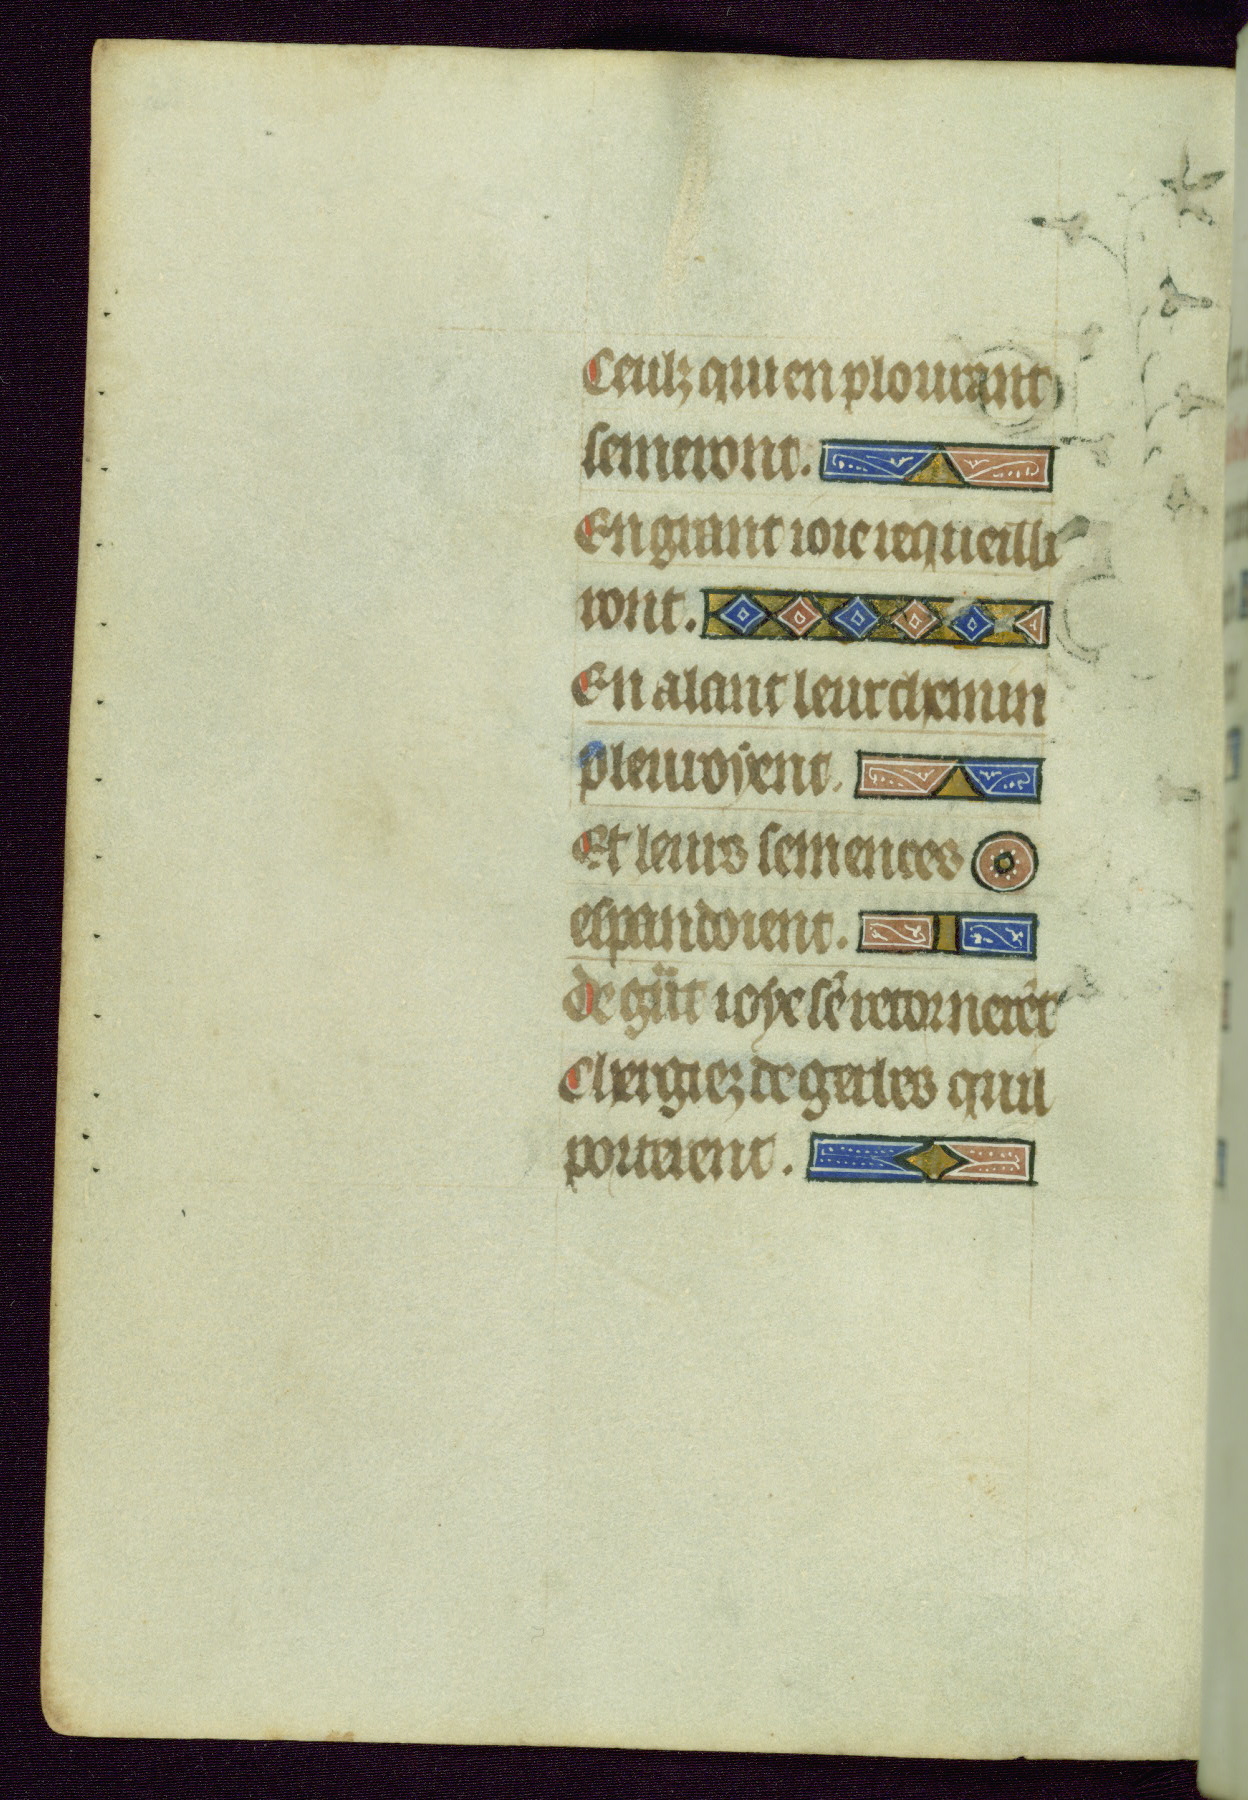 Ceulz qui en plourant
semeront.
En grant ioie requeilli
ront.
En alant leur chemin
plouroyent.
Et leurs semences
espandoient.
De gñt ioye sẽ retornerẽt
Chergiez de gerbes quil
porterent.